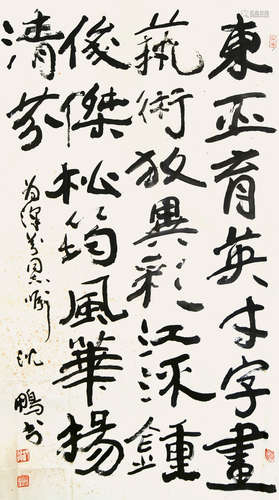 東亞育英才字畫
藝術放異彩江河鍾
俊傑松筠風華揚
清芬
為 同志
沈鵬書